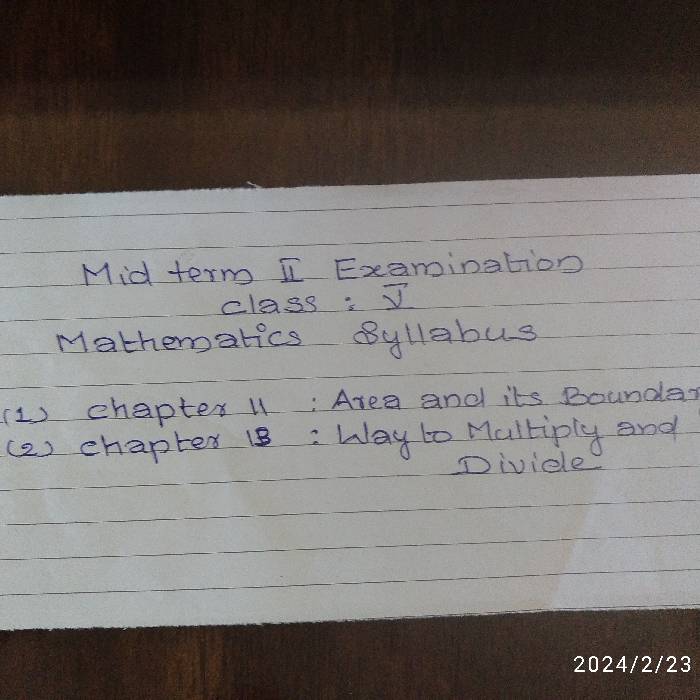 Mid term II Examination
class : V
Mathematics Syllabus
(1) chapter 11 : Area and its Boundar
(2) chapter 13 : Way to Multiply and
Divide
2024/2/23